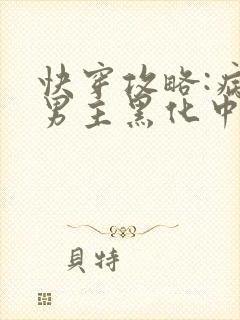 快穿攻略:病
男主黑化中
貝特